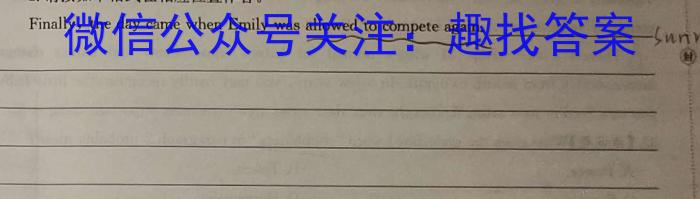 Finally, the day came when Emily was allowed to compete again.
微信公众号关注：趣找答案